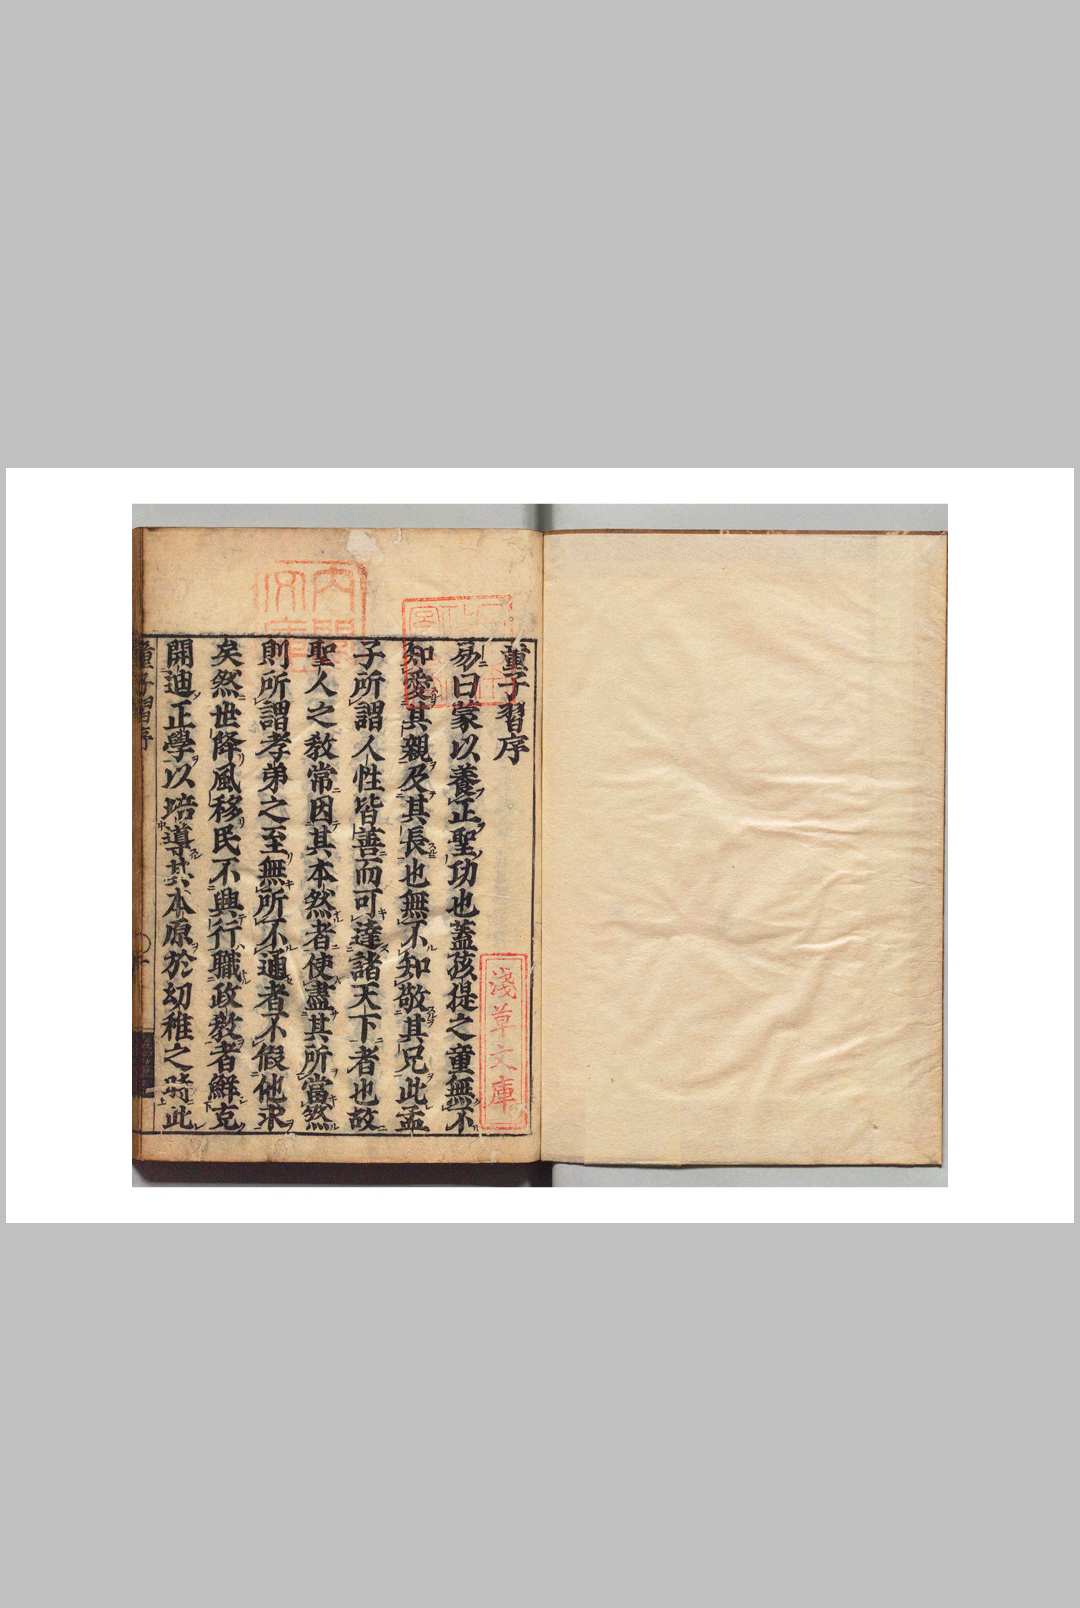 童子習序
易曰蒙以養正聖功也蓋孩提之童無不
知愛其親及其長也無不知敬其兄此孟
子所謂人性皆善而可達諸天下者也故
聖人之教常因其本然者使盡其所當然
則所謂孝弟之至無所不通者不假他求
矣然世降風移民不興行職政教者鮮克
開迪正學以培導其本原於幼稚之時此
童子習序
淺草文庫
內閣文庫